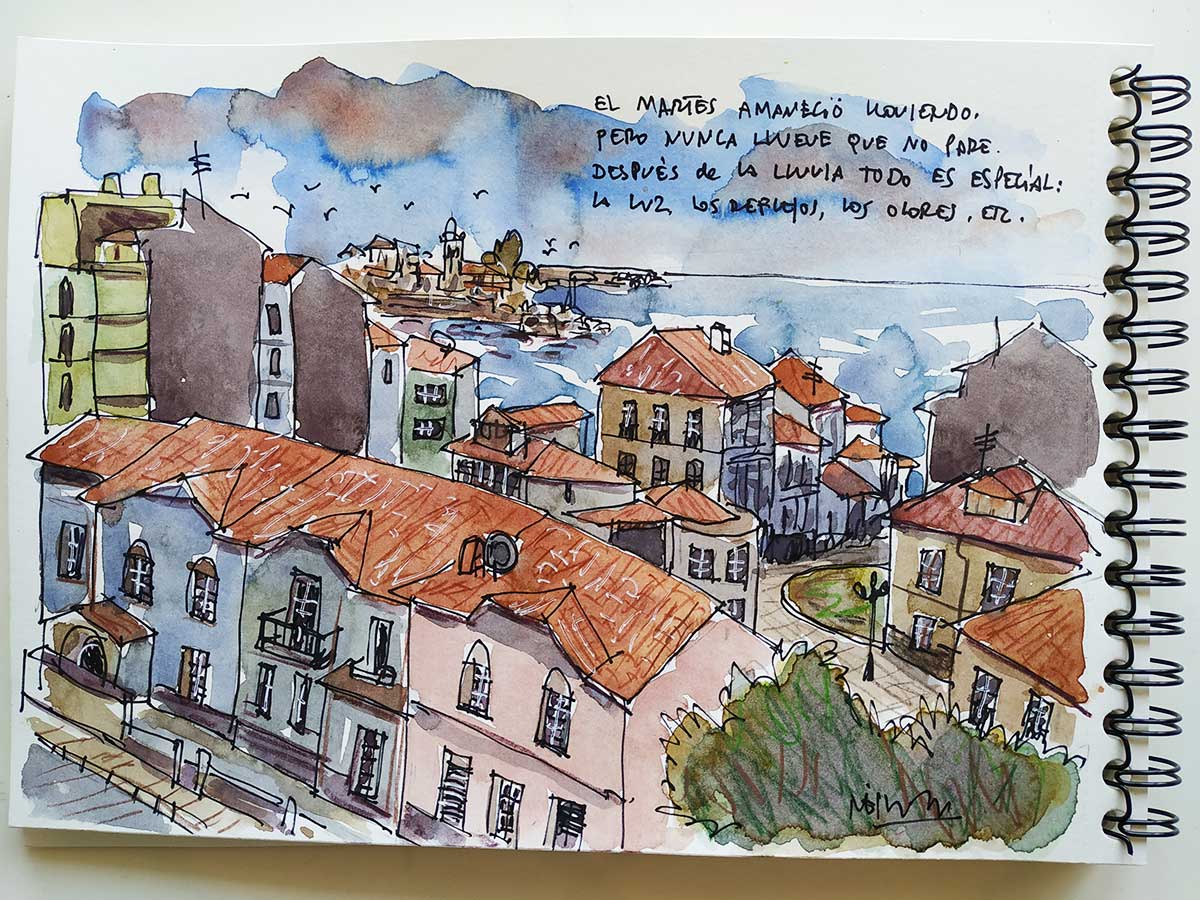 EL MARTES AMANECIÓ LLOVIENDO.
PERO NUNCA LLUEVE QUE NO PARE.
DESPUÉS de LA LLUVIA TODO ES ESPECIAL:
LA LUZ, LOS REFLEJOS, LOS OLORES, ETC.